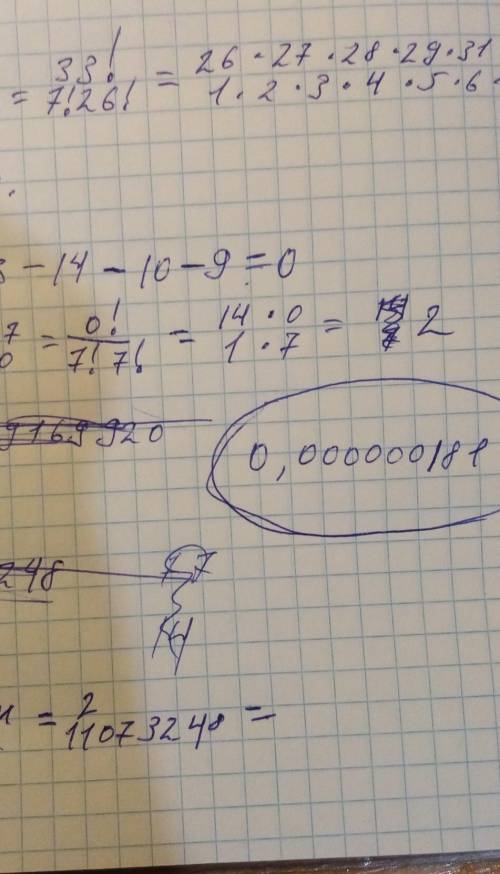 = 33! / 7!26! = 26 · 27 · 28 · 29 · 31 / 1 · 2 · 3 · 4 · 5 · 6 ·
- 14 - 10 - 9 = 0
= 0! / 7! 7! = 14 · 0 / 1 · 7 = 2
9169920
0,000000181
248
77
14
= 2 / 11073248 =